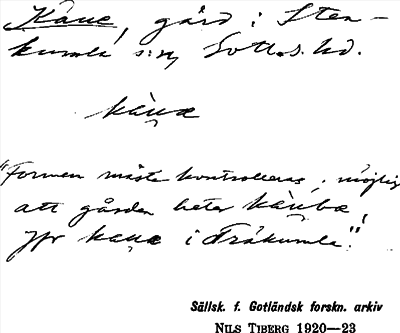 Käue, gård i Sten-
kumla s:n, Gotl. s. hd.
käu̯a
"Formen måste kontrolleras; möjligt
att gården heter käuba,
jfr kaua i Träkumla."
Sällsk. f. Gotländsk forskn. arkiv
NILS TIBERG 1920—23